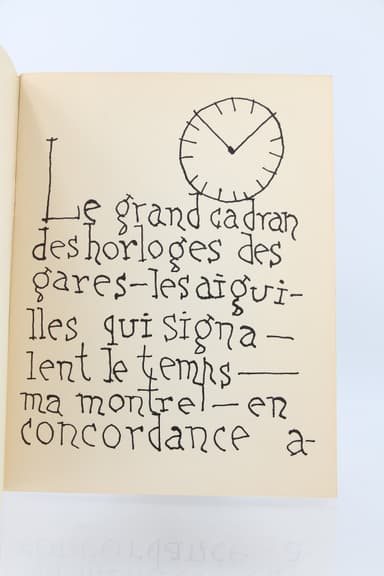 Le grand cadran
des horloges des
gares—les aigui-
lles qui signa—
lent le temps—
ma montre!—en
concordance a-